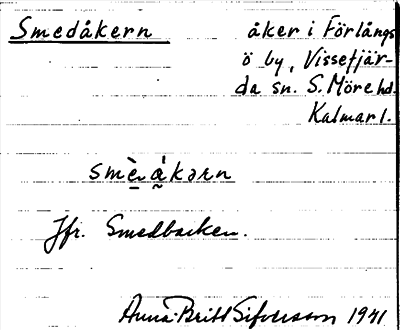 Smedåkern åker i Förlångs
ö by, Vissefjär-
da sn. S. Möre hd.
Kalmar l.
smè̱ɑ̰́kərn
Jfr. Smedbacken.
Anna-Britt Sifversson 1941